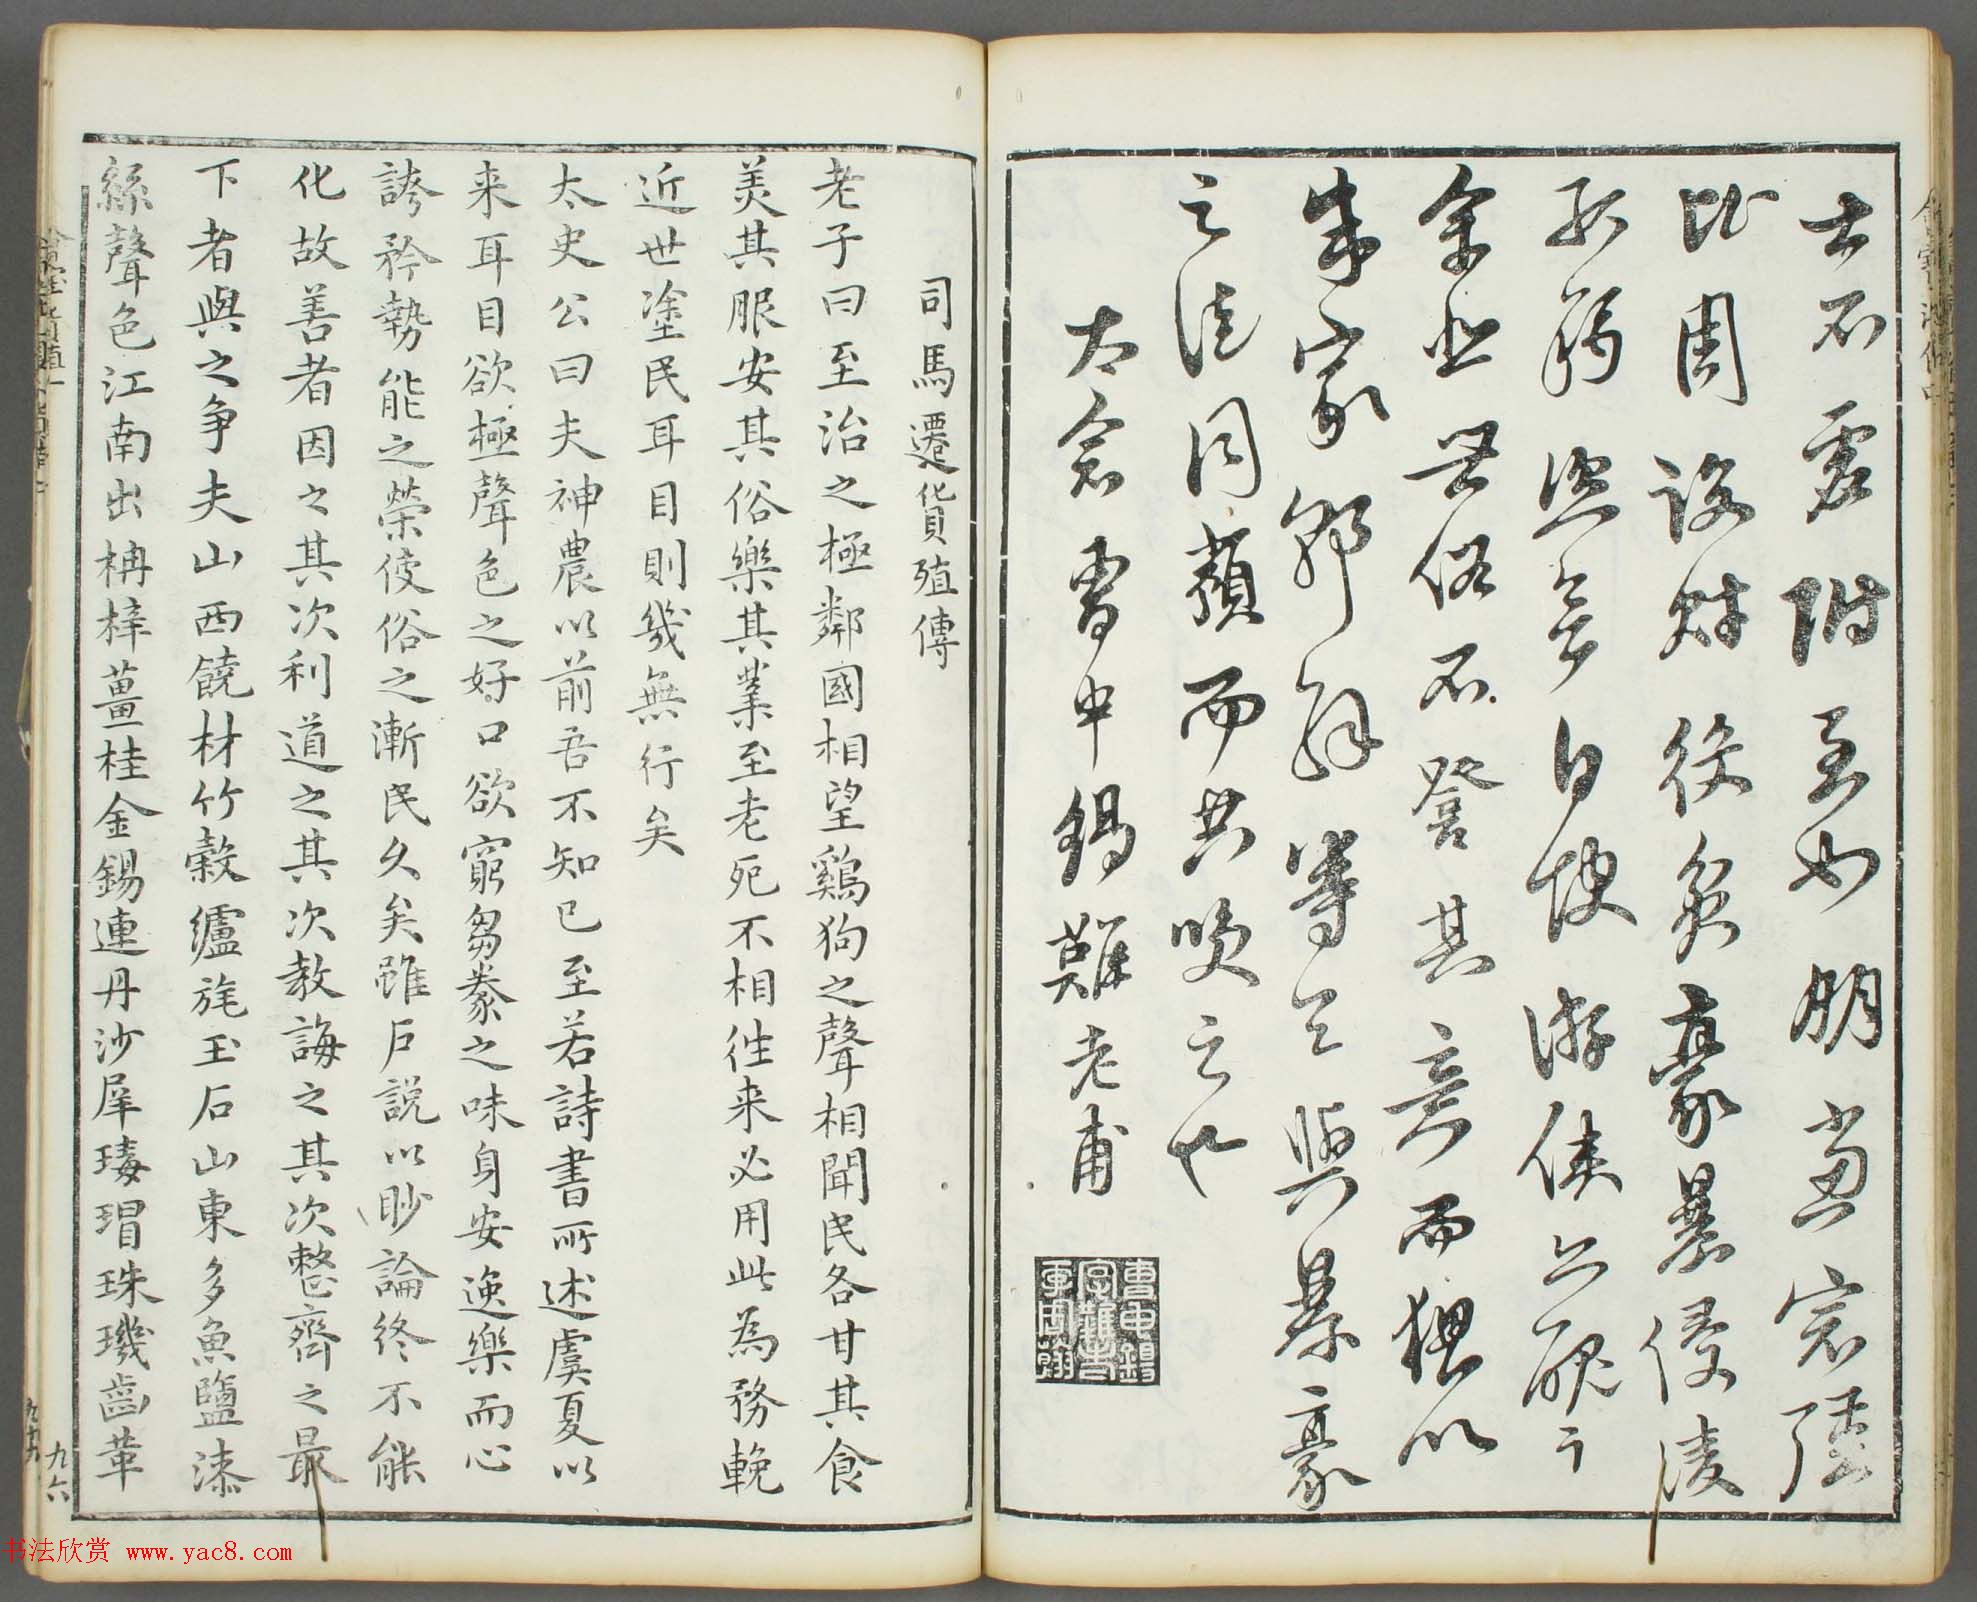 士不虛附至如朋黨宗强
比周設財役貧豪暴侵凌
孤弱恣欲自快游俠亦醜之
余悲世俗不察其意而猥以
朱家郭解等令與暴豪
之徒同類而共笑之也
太倉曹申錫難老甫
司馬遷貨殖傳
老子曰至治之極鄰國相望鷄狗之聲相聞民各甘其食
美其服安其俗樂其業至老死不相往来必用此為務輓
近世塗民耳目則幾無行矣
太史公曰夫神農以前吾不知已至若詩書所述虞夏以
来耳目欲極聲色之好口欲窮芻豢之味身安逸樂而心
誇矜勢能之榮使俗之漸民久矣雖戶說以眇論終不能
化故善者因之其次利道之其次教誨之其次整齊之最
下者與之争夫山西饒材竹穀纑旄玉石山東多魚鹽漆
絲聲色江南出枏梓薑桂金錫連丹沙犀瑇瑁珠璣齒革
九六
书法欣赏 www.yac8.com